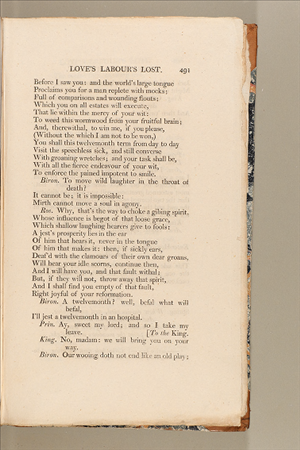 LOVE'S LABOUR'S LOST. 491
Before I saw you: and the world's large tongue
Proclaims you for a man replete with mocks;
Full of comparisons and wounding flouts;
Which you on all estates will execute,
That lie within the mercy of your wit:
To weed this wormwood from your fruitful brain;
And, therewithal, to win me, if you please,
(Without the which I am not to be won,)
You shall this twelvemonth term from day to day
Visit the speechless sick, and still converse
With groaning wretches; and your task shall be,
With all the fierce endeavour of your wit,
To enforce the pained impotent to smile.
Biron. To move wild laughter in the throat of
death?
It cannot be; it is impossible:
Mirth cannot move a soul in agony.
Ros. Why, that's the way to choke a gibing spirit,
Whose influence is begot of that loose grace,
Which shallow laughing hearers give to fools:
A jest's prosperity lies in the ear
Of him that hears it, never in the tongue
Of him that makes it: then, if sickly ears,
Deaf'd with the clamours of their own dear groans,
Will hear your idle scorns, continue then,
And I will have you, and that fault withal;
But, if they will not, throw away that spirit,
And I shall find you empty of that fault,
Right joyful of your reformation.
Biron. A twelvemonth? well, befal what will
befal,
I'll jest a twelvemonth in an hospital.
Prin. Ay, sweet my lord; and so I take my
leave. [To the King.
King. No, madam: we will bring you on your
way.
Biron. Our wooing doth not end like an old play;